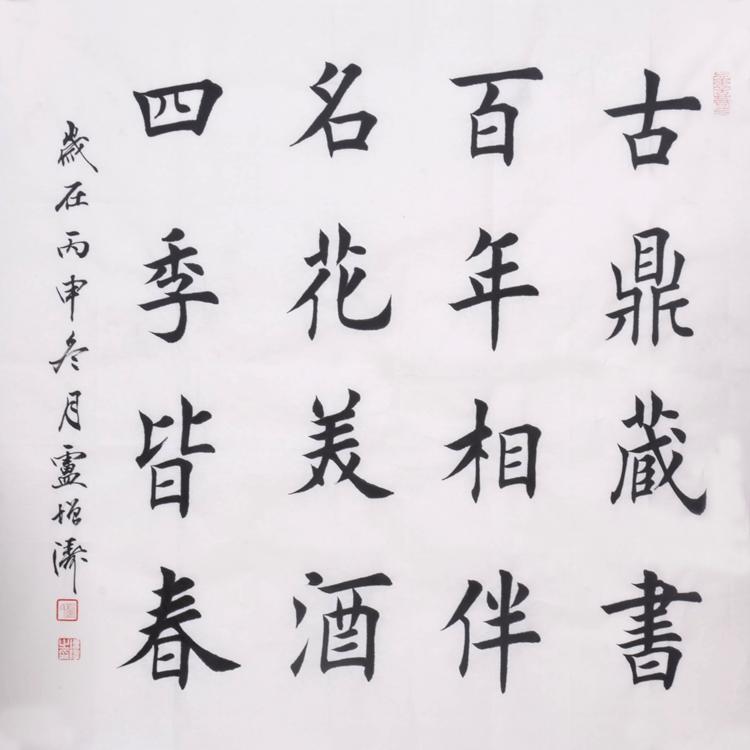 古鼎蔵書
百年相伴
名花美酒
四季皆春
歲在丙申冬月盧增濤